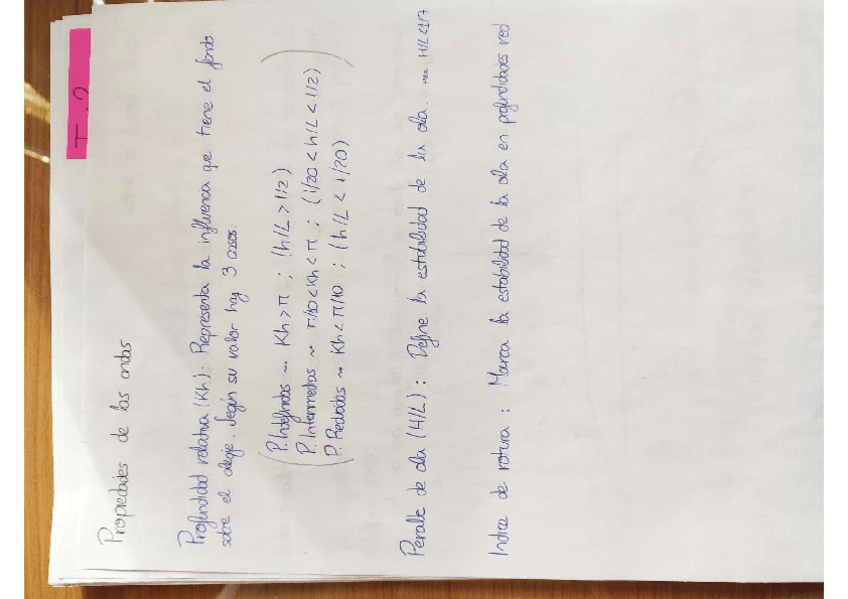 T.2
Propiedades de las ondas
Profundidad relativa (Kh): Representa la influencia que tiene el fondo
sobre el oleaje. Según su valor hay 3 casos:
P. Indefinidas ~ Kh > π ; (h/L > 1/2)
P. Intermedias ~ π/10 < Kh < π ; (1/20 < h/L < 1/2)
P. Reducidas ~ Kh < π/10 ; (h/L < 1/20)
Peralte de ola (H/L): Define la estabilidad de la ola. max H/L < 1/7
Indice de rotura: Marca la estabilidad de la ola en profundidades red.